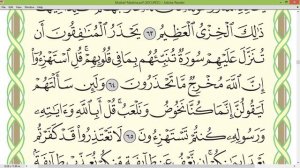 ذَٰلِكَ الْخِزْيُ الْعَظِيمُ ٦٣ يَحْذَرُ الْمُنَافِقُونَ أَن
تُنَزَّلَ عَلَيْهِمْ سُورَةٌ تُنَبِّئُهُم بِمَا فِي قُلُوبِهِمْ قُلِ اسْتَهْزِءُوا
إِنَّ اللَّهَ مُخْرِجٌ مَّا تَحْذَرُونَ ٦٤ وَلَئِن سَأَلْتَهُمْ
لَيَقُولُنَّ إِنَّمَا كُنَّا نَخُوضُ وَنَلْعَبُ قُلْ أَبِاللَّهِ وَآيَاتِهِ
وَرَسُولِهِ كُنتُمْ تَسْتَهْزِءُونَ ٦٥ لَا تَعْتَذِرُوا قَدْ كَفَرْتُم